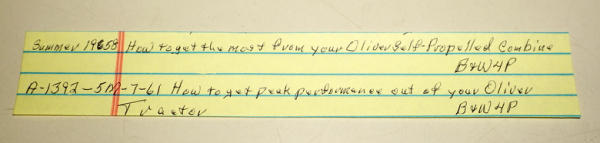 Summer 1958 How to get the most from your Oliver Self-Propelled Combine
B&W 4P
A-1392-5M-7-61 How to get peak performance out of your Oliver
Tractor B&W 4P